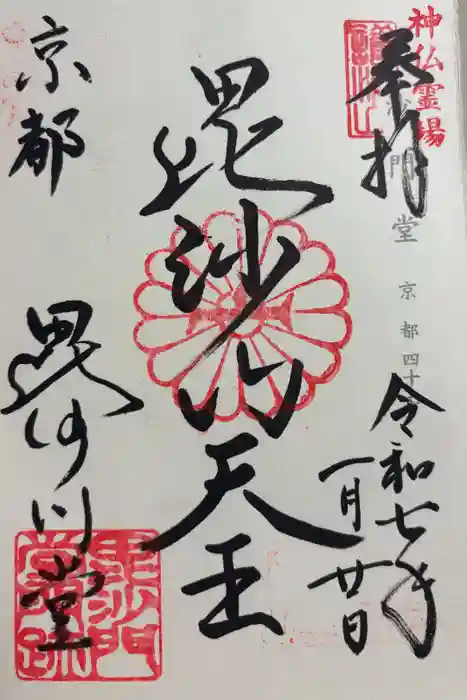 神仏霊場
門堂 京都四十
奉拝
令和七年
一月廿日
毘沙門天王
京都
毘沙門堂